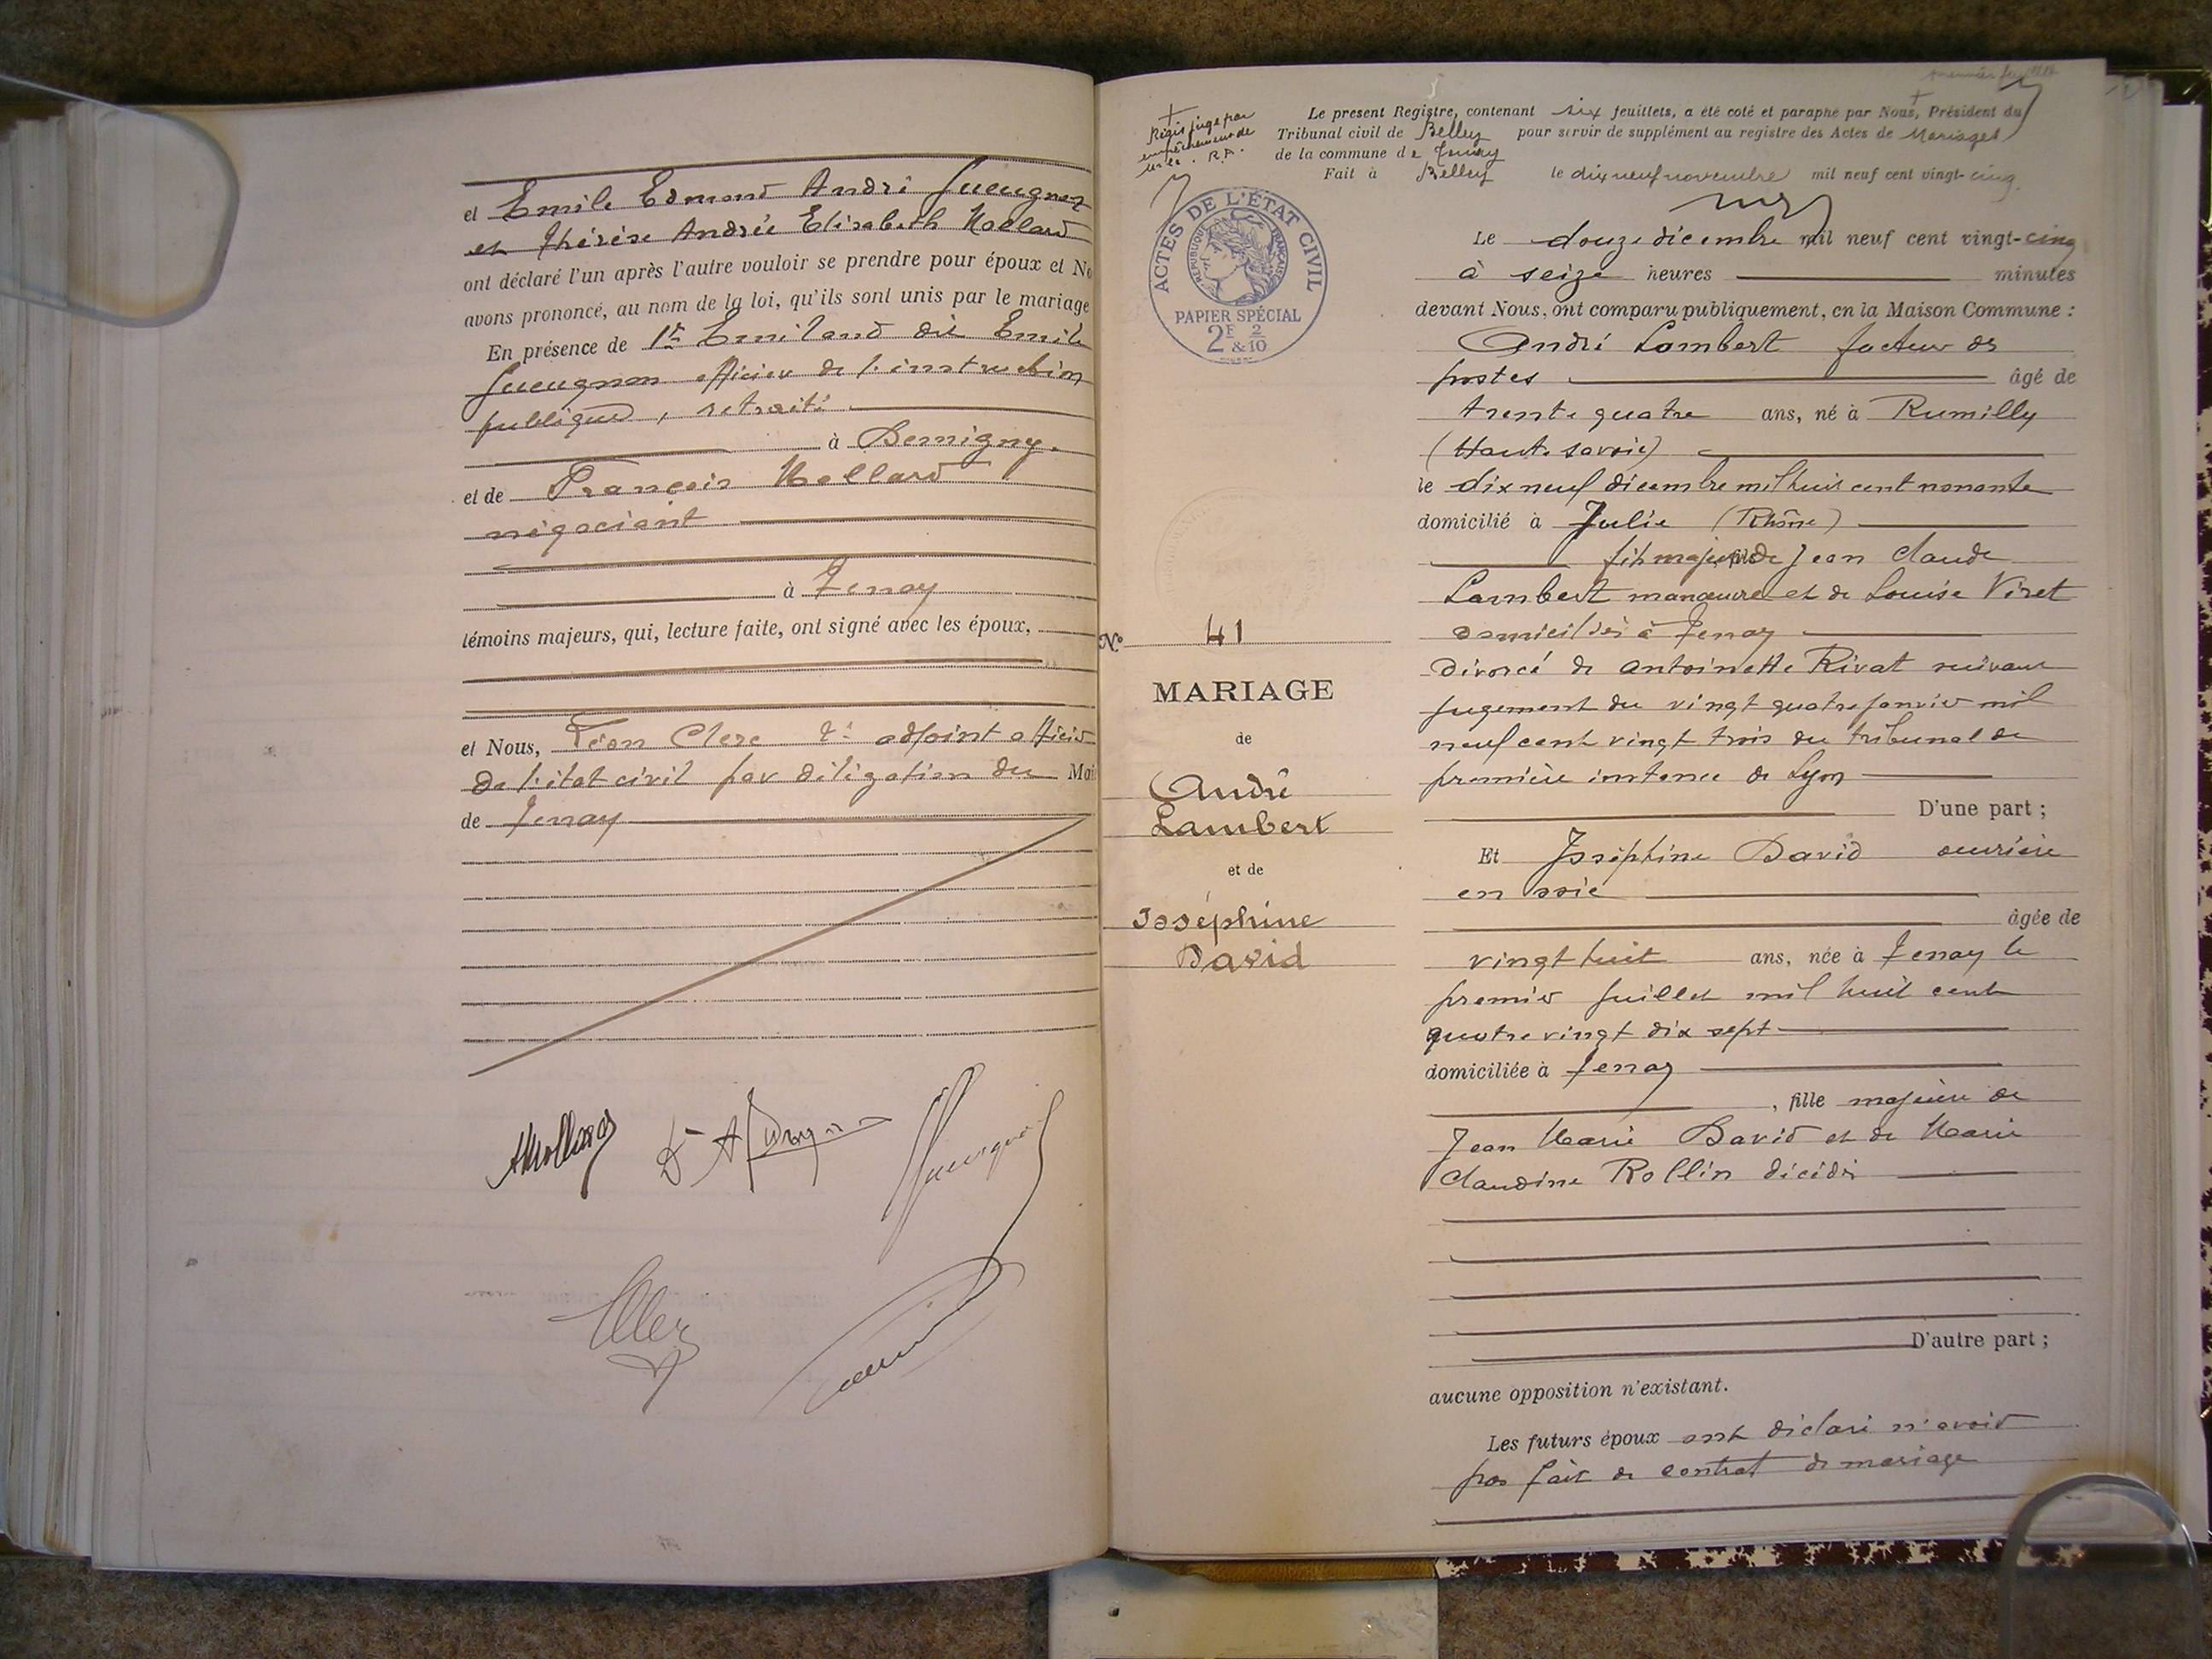 et Emile Edmond André Gueugnon
et Thérèse Andrée Elisabeth Mollard
ont déclaré l'un après l'autre vouloir se prendre pour époux et No
avons prononcé, au nom de la loi, qu'ils sont unis par le mariage
En présence de 1º Emiland dit Emile
Gueugnon officier de l'instruction
publique, retraité
à Demigny.
et de François Mollard
négociant
à Tenay
témoins majeurs, qui, lecture faite, ont signé avec les époux,
et Nous, Léon Clerc 2e adjoint officier
de l'état civil par délégation du Mai
de Tenay
AMollard
Gueugnon
Clerc
Le present Registre, contenant six feuillets, a été coté et paraphé par Nous, Président du
Tribunal civil de Belley pour servir de supplément au registre des Actes de Mariages
de la commune de Tenay
Fait à Belley le dix neuf novembre mil neuf cent vingt-cinq.
juge par
empêchement de
R.A.
ACTES DE L'ÉTAT CIVIL
RÉPUBLIQUE FRANÇAISE
PAPIER SPÉCIAL
2F & 2/10
No 41
MARIAGE
de
André
Lambert
et de
Joséphine
David
Le douze décembre mil neuf cent vingt-cinq
à seize heures minutes
devant Nous, ont comparu publiquement, en la Maison Commune :
André Lambert facteur des
postes âgé de
trente quatre ans, né à Rumilly
(Haute savoie)
le dix neuf décembre mil huit cent nonante
domicilié à Julié (Rhône)
fils majeur de Jean Claude
Lambert manœuvre et de Louise Viret
domiciliés à Tenay
divorcé de Antoinette Rivat suivant
jugement du vingt quatre janvier mil
neuf cent vingt trois du tribunal de
première instance de Lyon
D'une part ;
Et Joséphine David ouvrière
en soie
âgée de
vingt huit ans, née à Tenay le
premier juillet mil huit cent
quatre vingt dix sept
domiciliée à Tenay
, fille majeure de
Jean Marie David et de Marie
Claudine Rollin décédés
D'autre part ;
aucune opposition n'existant.
Les futurs époux ont déclaré n'avoir
pas fait de contrat de mariage